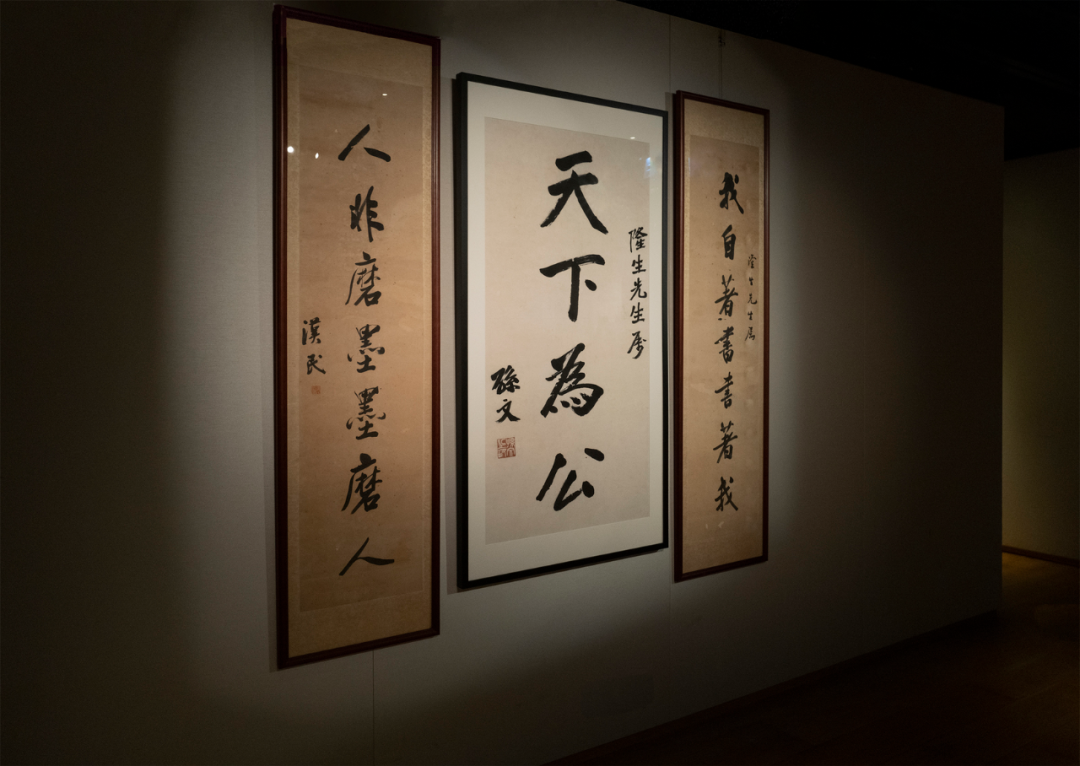 隆生先生屬
我自著書書著我
隆生先生屬
天下為公
孫文
人非磨墨墨磨人
漢民